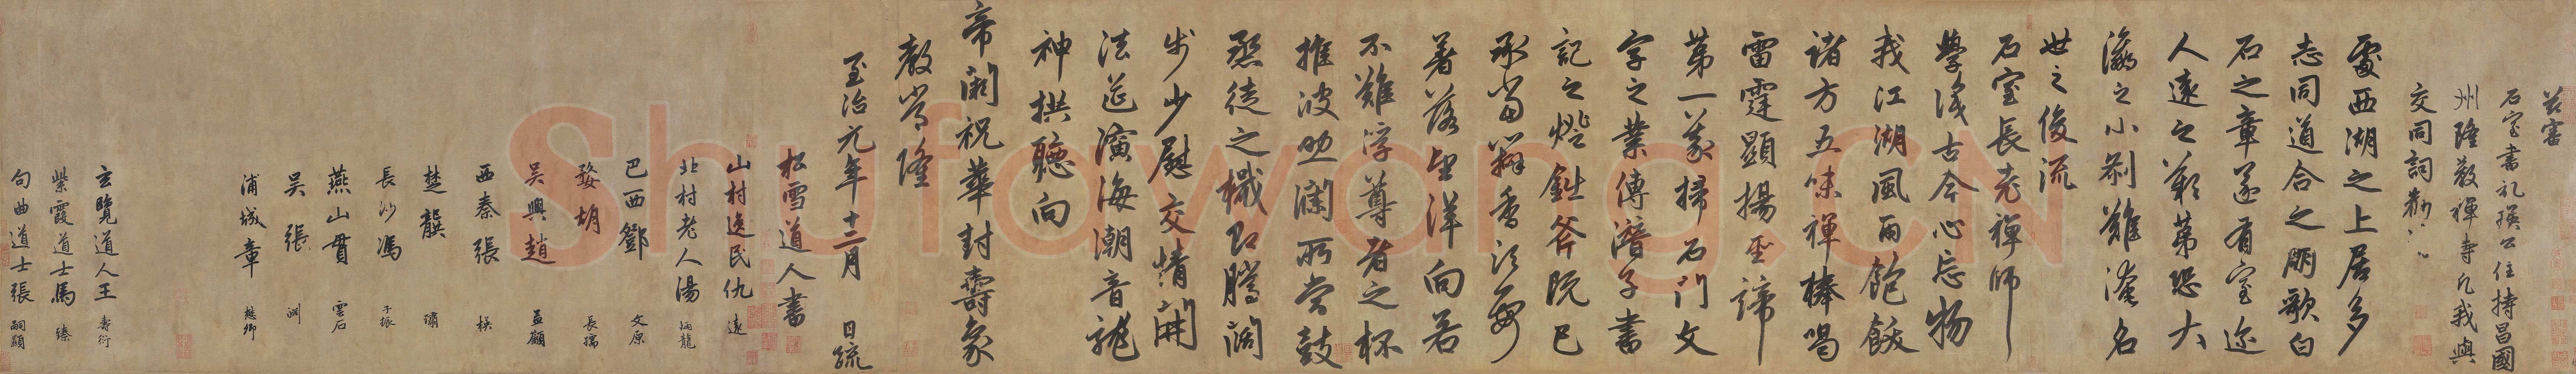 茲審
石室書記瑛公住持昌國
州隆教禪寺凡我與
交同詞勸請
處西湖之上居多
志同道合之朋歌白
石之章遂有室邇
人遠之歎第恐大
瀛之小剎難淹名
世之俊流
石室長老禪師
學識古今心忘物
我江湖風雨飽飫
諸方五味禪棒喝
雷霆顯揚聖諦
第一義掃石門文
字之業傳潛子書
記之燈鈯斧既已
承當瓣香須要
著落望洋向若
不難浮尊者之杯
推波助瀾所當鼓
烝徒之檝即騰闊
步少慰交情開
法筵演海潮音龍
神拱聽向
帝闕祝華封壽象
教常隆
至治元年十二月 日疏
松雪道人書
山村逸民仇 遠
北村老人湯 炳龍
巴西鄧 文原
婺胡 長孺
吳興趙 孟頫
西秦張 楧
楚龔 璛
長沙馮 子振
燕山貫 雲石
吳張 淵
浦城章 懋卿
玄覽道人王 壽衍
紫霞道士馬 臻
句曲道士張 嗣顯
Shufawang.CN